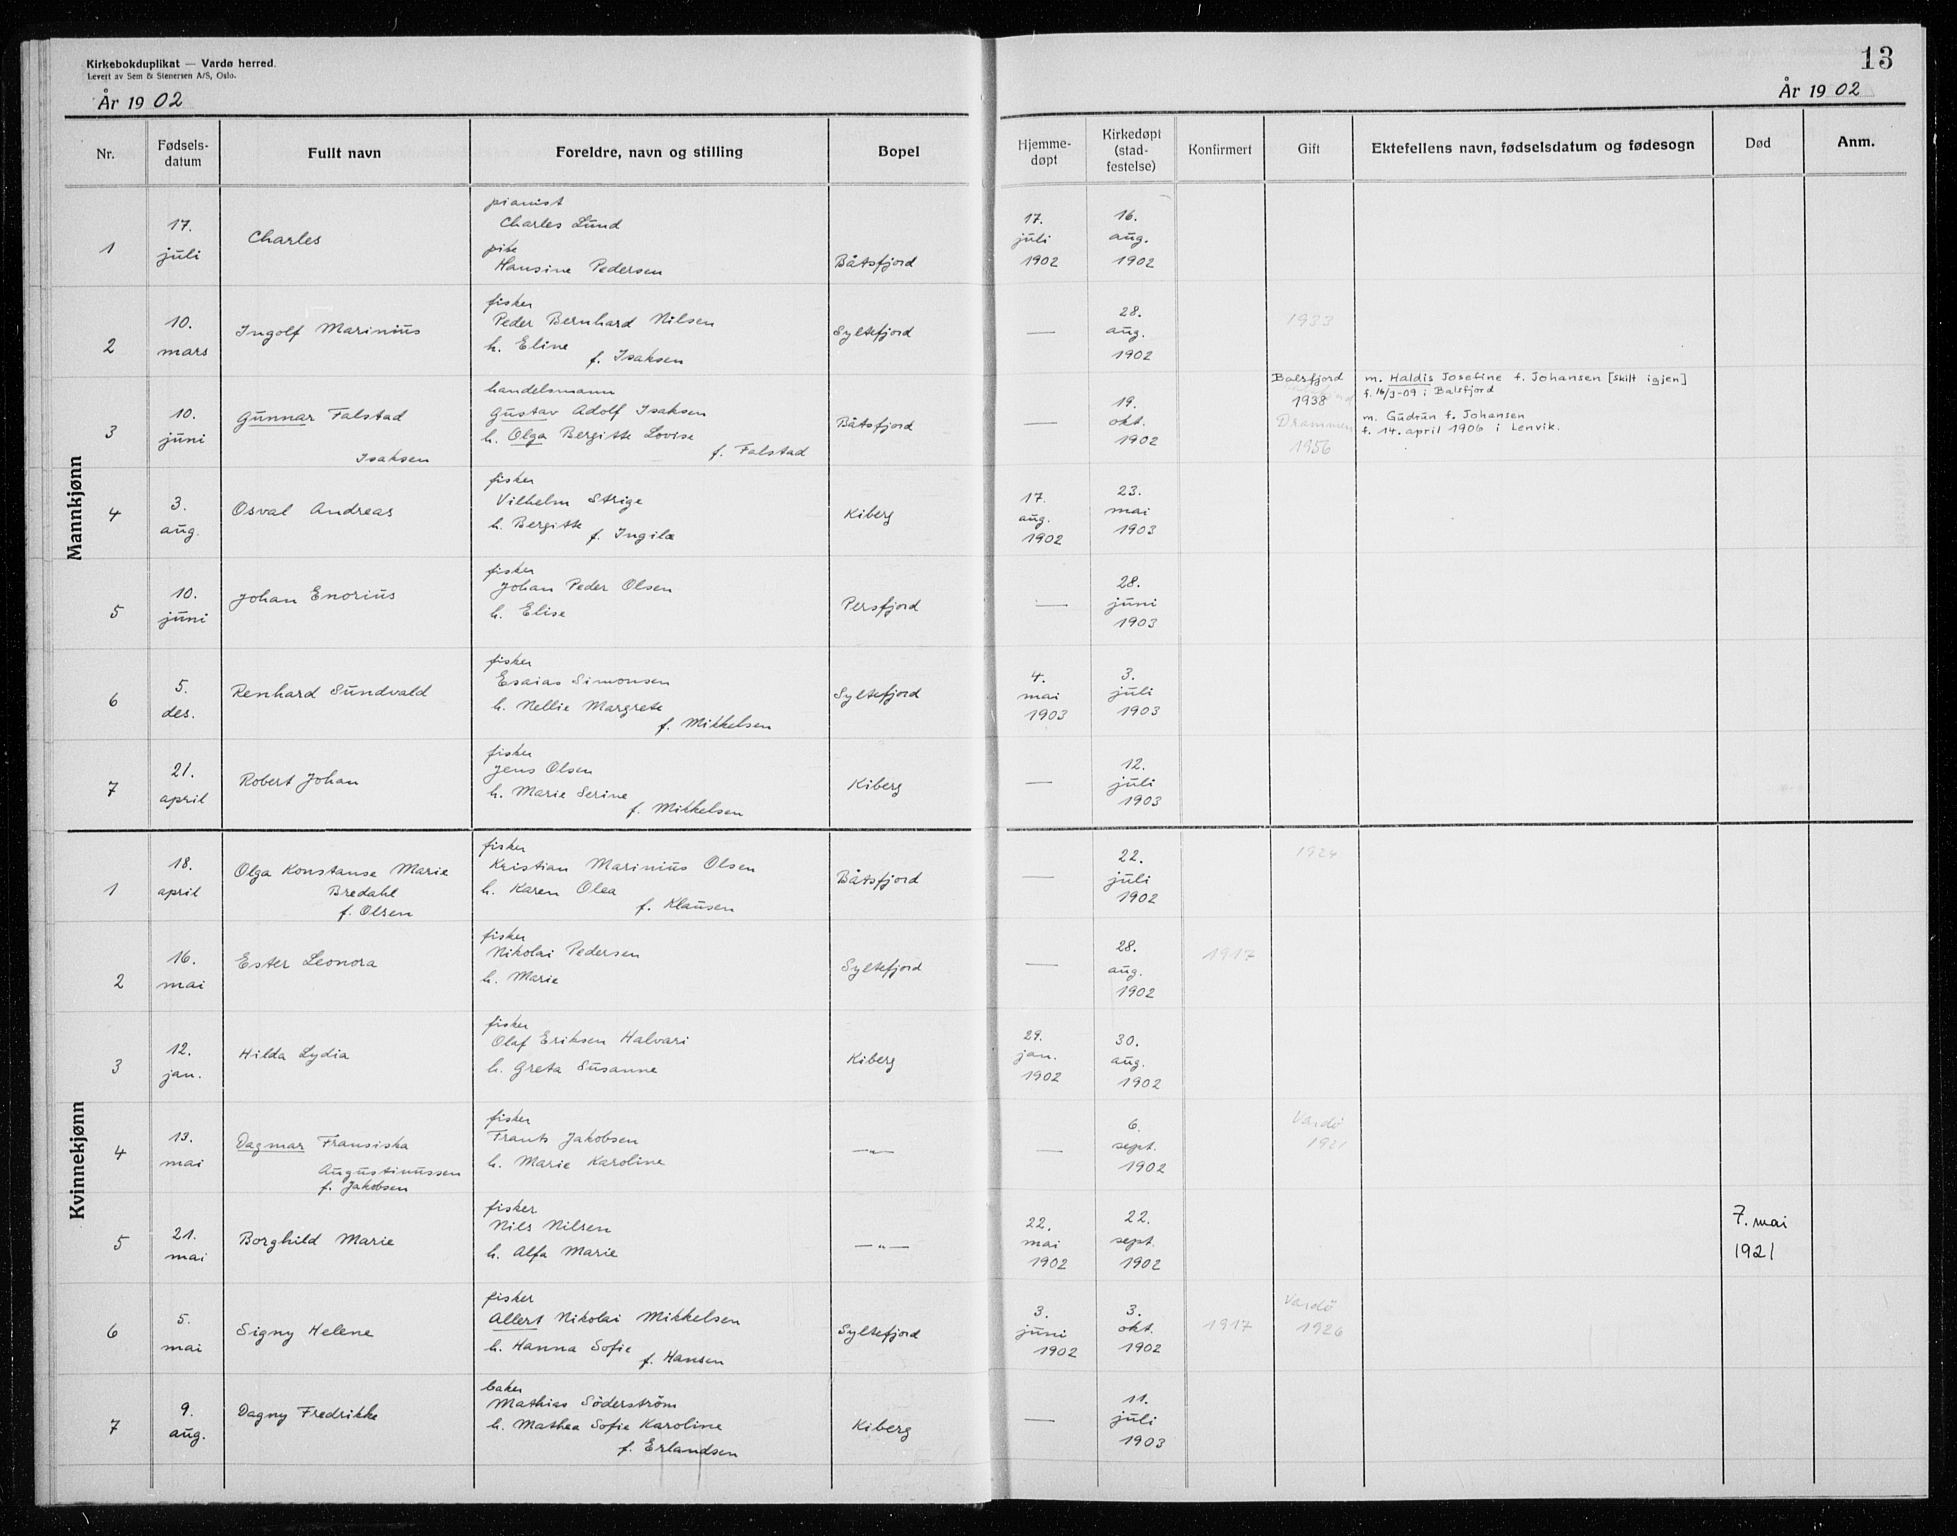 Kirkebokduplikat — Vardø herred.
Levert av Sem & Stenersen A/S, Oslo.
År 1902
13
År 1902
Nr. Fødselsdatum Fullt navn Foreldre, navn og stilling Bopel Hjemmedøpt Kirkedøpt (stadfestelse) Konfirmert Gift Ektefellens navn, fødselsdatum og fødesogn Død Anm.
Mannkjønn
1 17. juli Charles
pianist
Charles Lund
pike
Hansine Pedersen
Båtsfjord
17. juli 1902
16. aug. 1902
2 10. mars Ingolf Marinius
fisker
Peder Bernhard Nilsen
h. Eline
f. Isaksen
Syltefjord
—
28. aug. 1902
1933
3 10. juni Gunnar Falstad
Isaksen
handelsmann
Gustav Adolf Isaksen
h. Olga Bergitte Lovise
f. Falstad
Båtsfjord
—
19. okt. 1902
Balsfjord
1938
Drammen
1956
m. Haldis Josefine f. Johansen [skilt igjen]
f. 16/3-09 i Balsfjord
m. Gudrun f. Johansen
f. 14. april 1906 i Lenvik.
4 3. aug. Osval Andreas
fisker
Vilhelm Strige
h. Bergitte
f. Ingilæ
Kiberg
17. aug. 1902
23. mai 1903
5 10. juni Johan Enorius
fisker
Johan Peder Olsen
h. Elise
Persfjord
—
28. juni 1903
6 5. des. Renhard Sundvald
fisker
Esaias Simonsen
h. Nellie Margrete
f. Mikkelsen
Syltefjord
4. mai 1903
3. juli 1903
7 21. april Robert Johan
fisker
Jens Olsen
h. Marie Serine
f. Mikkelsen
Kiberg
—
12. juli 1903
Kvinnekjønn
1 18. april Olga Konstanse Marie
Bredahl
f. Olsen
fisker
Kristian Marinius Olsen
h. Karen Olea
f. Klausen
Båtsfjord
—
22. juli 1902
1924
2 16. mai Ester Leonora
fisker
Nikolai Pedersen
h. Marie
Syltefjord
—
28. aug. 1902
1917
3 12. jan. Hilda Lydia
fisker
Olaf Eriksen Halvari
h. Greta Susanne
Kiberg
29. jan. 1902
30. aug. 1902
4 13. mai Dagmar Fransiska
Augustinussen
f. Jakobsen
fisker
Frants Jakobsen
h. Marie Karoline
—„—
—
6. sept. 1902
Vardø
1921
5 21. mai Borghild Marie
fisker
Nils Nilsen
h. Alfa Marie
—„—
22. mai 1902
22. sept. 1902
7. mai
1921
6 5. mai Signy Helene
fisker
Allert Nikolai Mikkelsen
h. Hanna Sofie
f. Hansen
Syltefjord
3. juni 1902
3. okt. 1902
1917
Vardø
1926
7 9. aug. Dagny Fredrikke
baker
Mathias Söderström
h. Mathea Sofie Karoline
f. Erlandsen
Kiberg
—
11. juli 1903